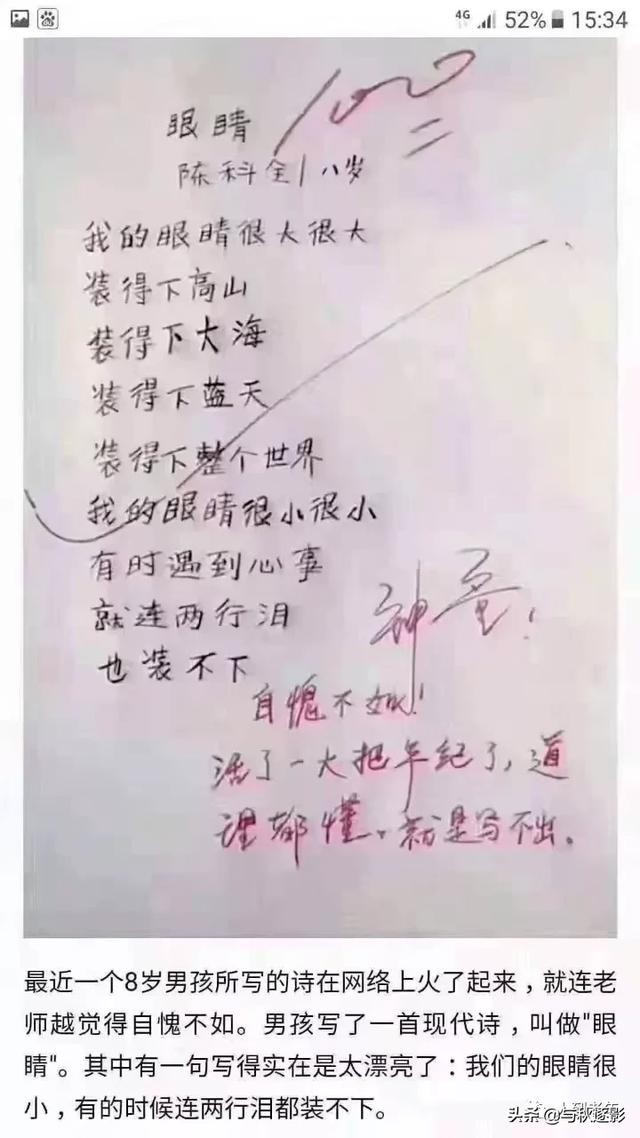 4G 52% 15:34
100
眼睛
陈科全|八岁
我的眼睛很大很大
装得下高山
装得下大海
装得下蓝天
装得下整个世界
我的眼睛很小很小
有时遇到心事
就连两行泪
也装不下
神童!
自愧不如!
活了一大把年纪了,道
理都懂。就是写不出。
最近一个8岁男孩所写的诗在网络上火了起来，就连老
师越觉得自愧不如。男孩写了一首现代诗，叫做"眼
睛"。其中有一句写得实在是太漂亮了：我们的眼睛很
小，有的时候连两行泪都装不下。
头条@与秋逐影